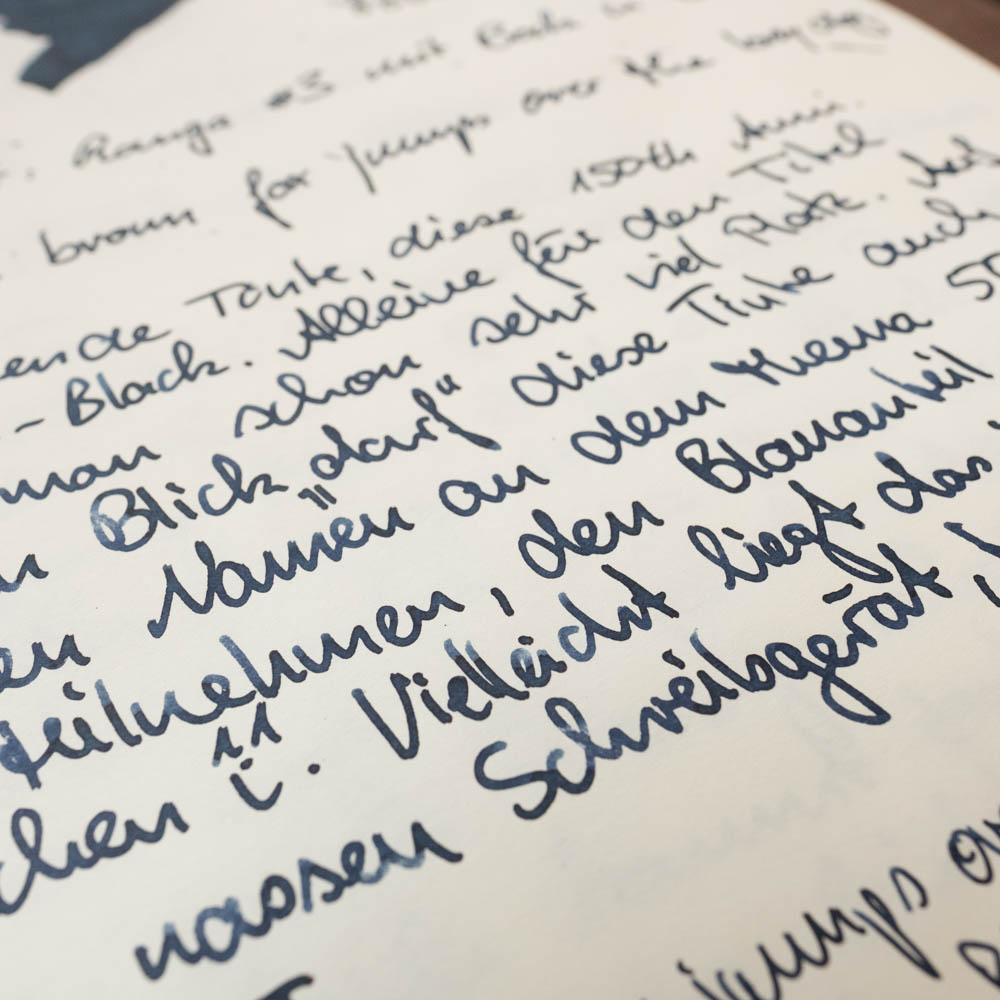 Ranga #3 mit Bock
brown fox jumps over the lazy dog
Tante, diese 150th Anni.
- Black. Alleine für den Titel
man schon sehr viel Platz. Auf
Blick „darf“ diese Tinte auch
Namen an dem Thema 50
teilnehmen, den Blauanteil
chen i. Vielleicht liegt das
nassen Schreibgerät,
jumps